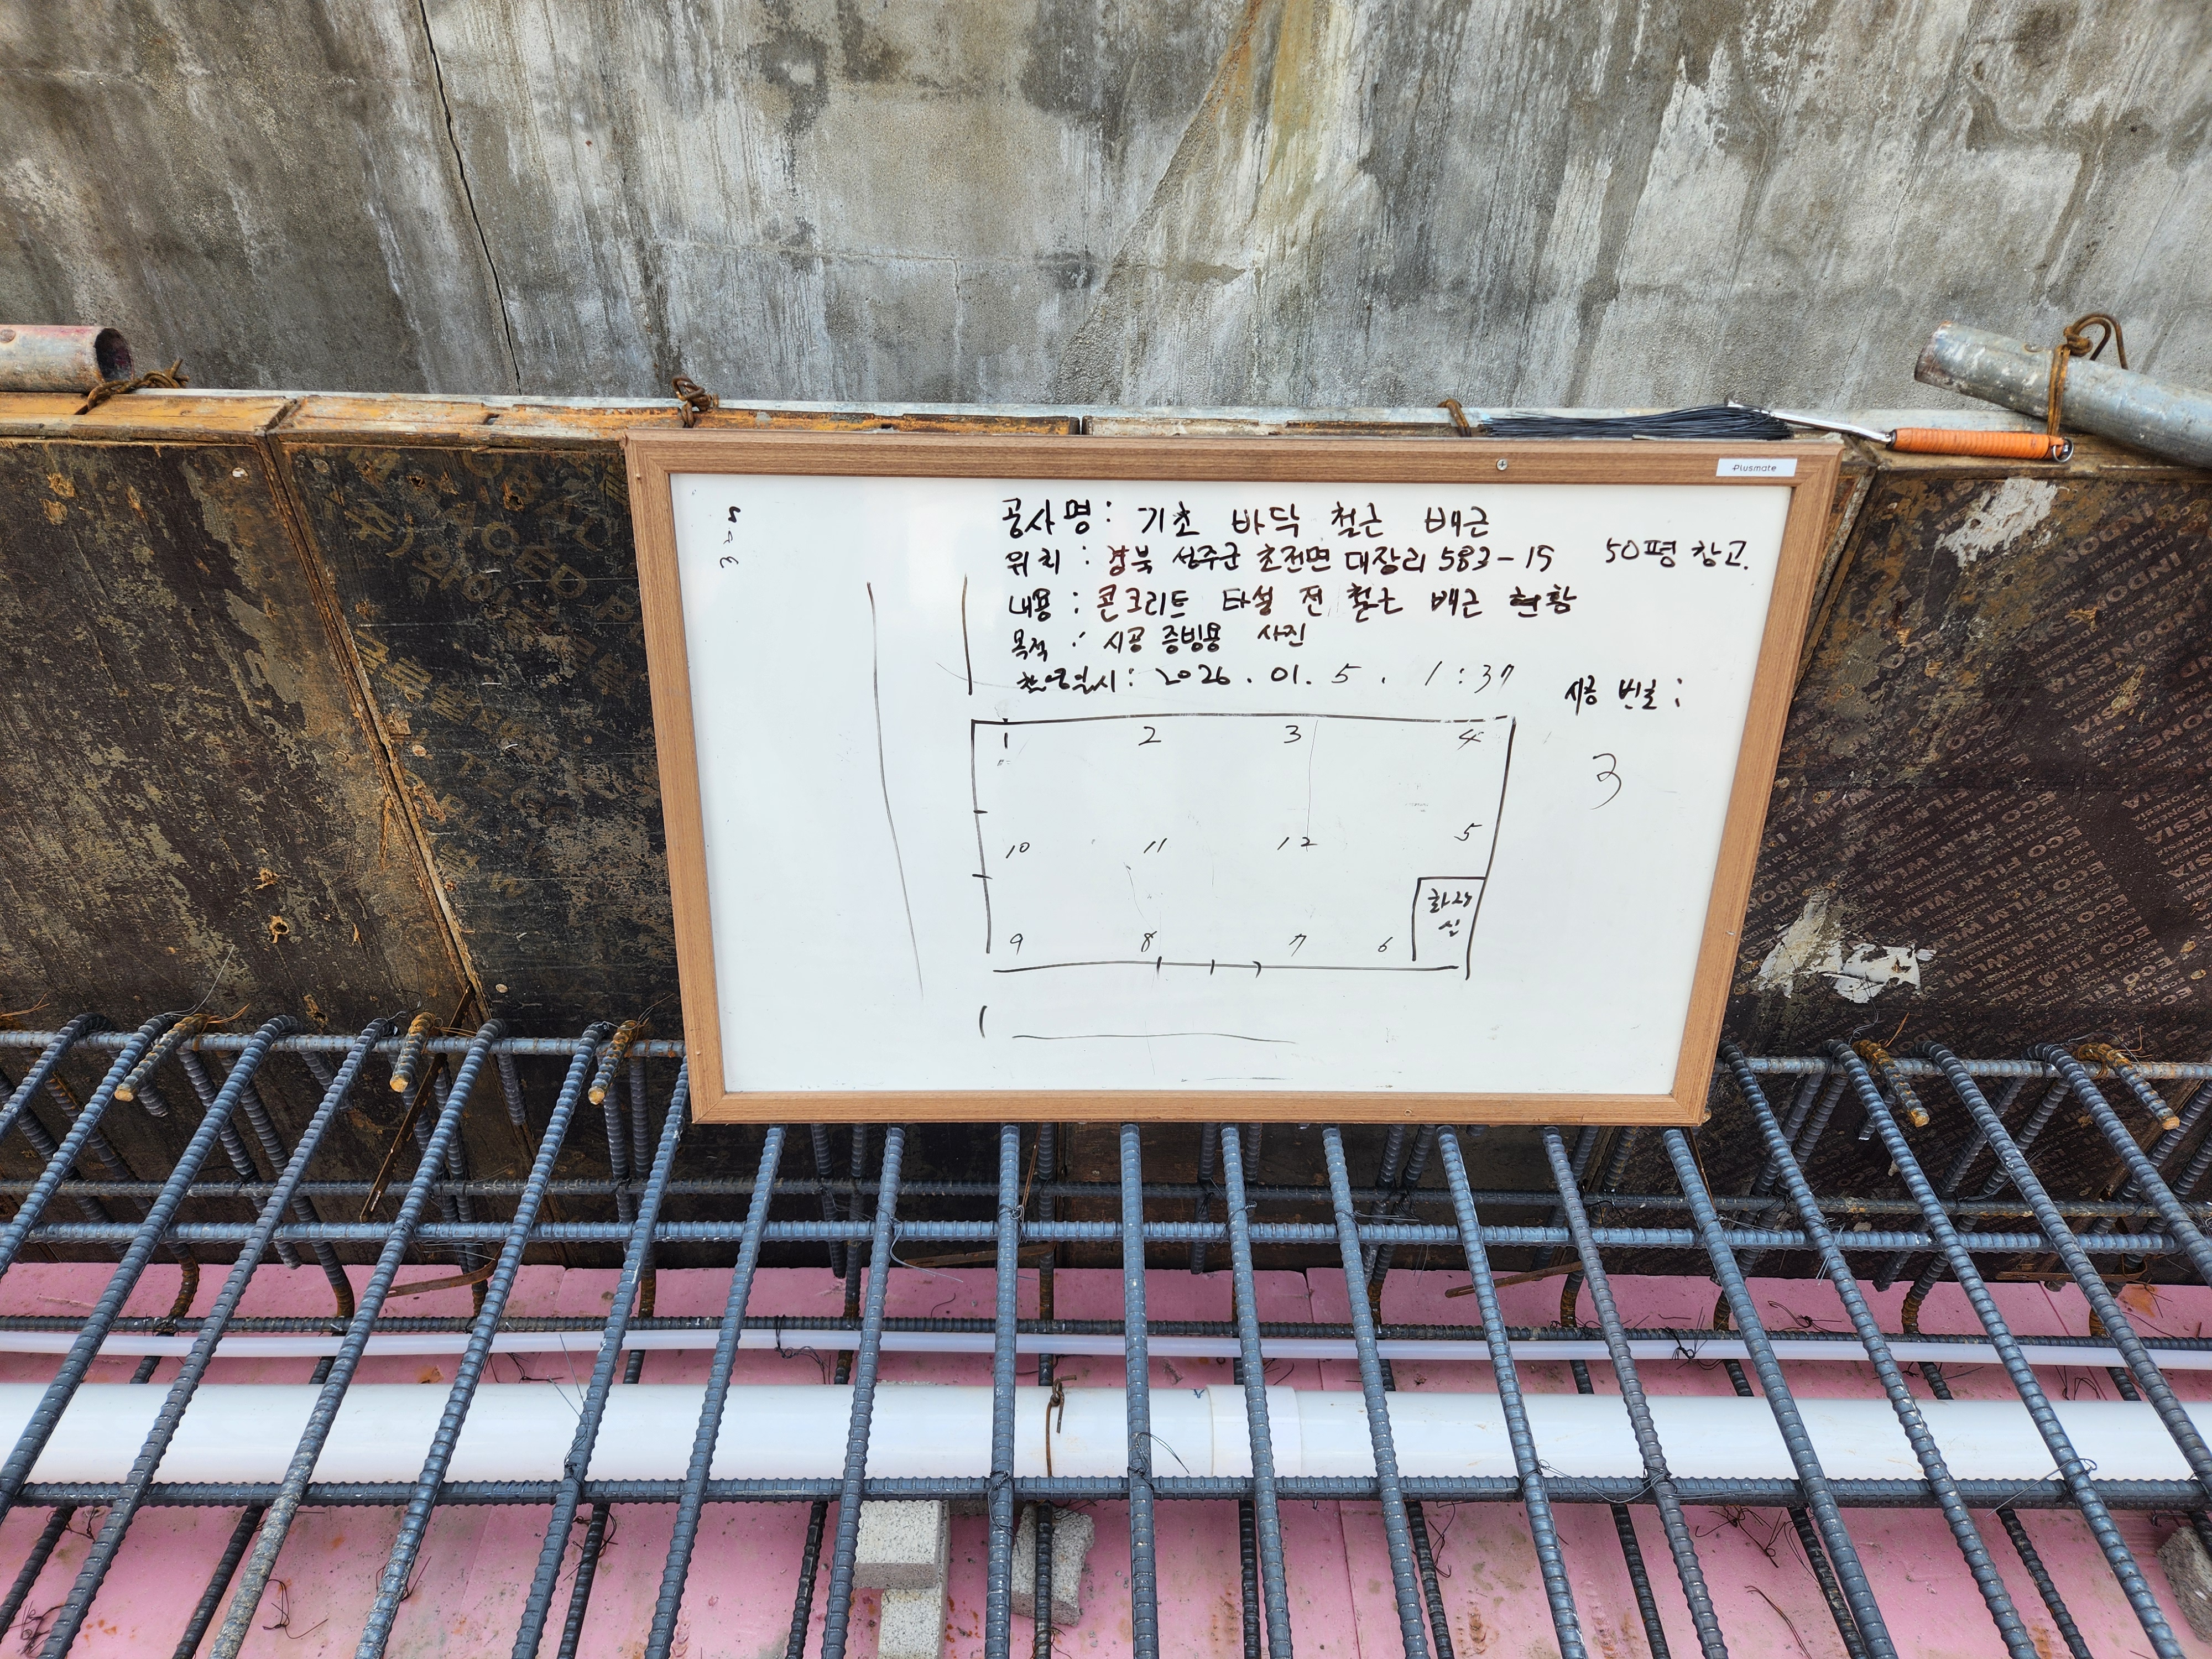 Plusmate
공사명: 기초 바닥 철근 배근
위치 : 경북 성주군 초전면 대장리 583-15 50평 창고.
내용 : 콘크리트 타설 전 철근 배근 현황
목적 : 시공 증빙용 사진
촬영일시: 2026.01.5. 1:37
시공 번호:
3
1 2 3 4
10 11 12 5
화장
실
9 8 7 6
ECO FILM
INDONESIA